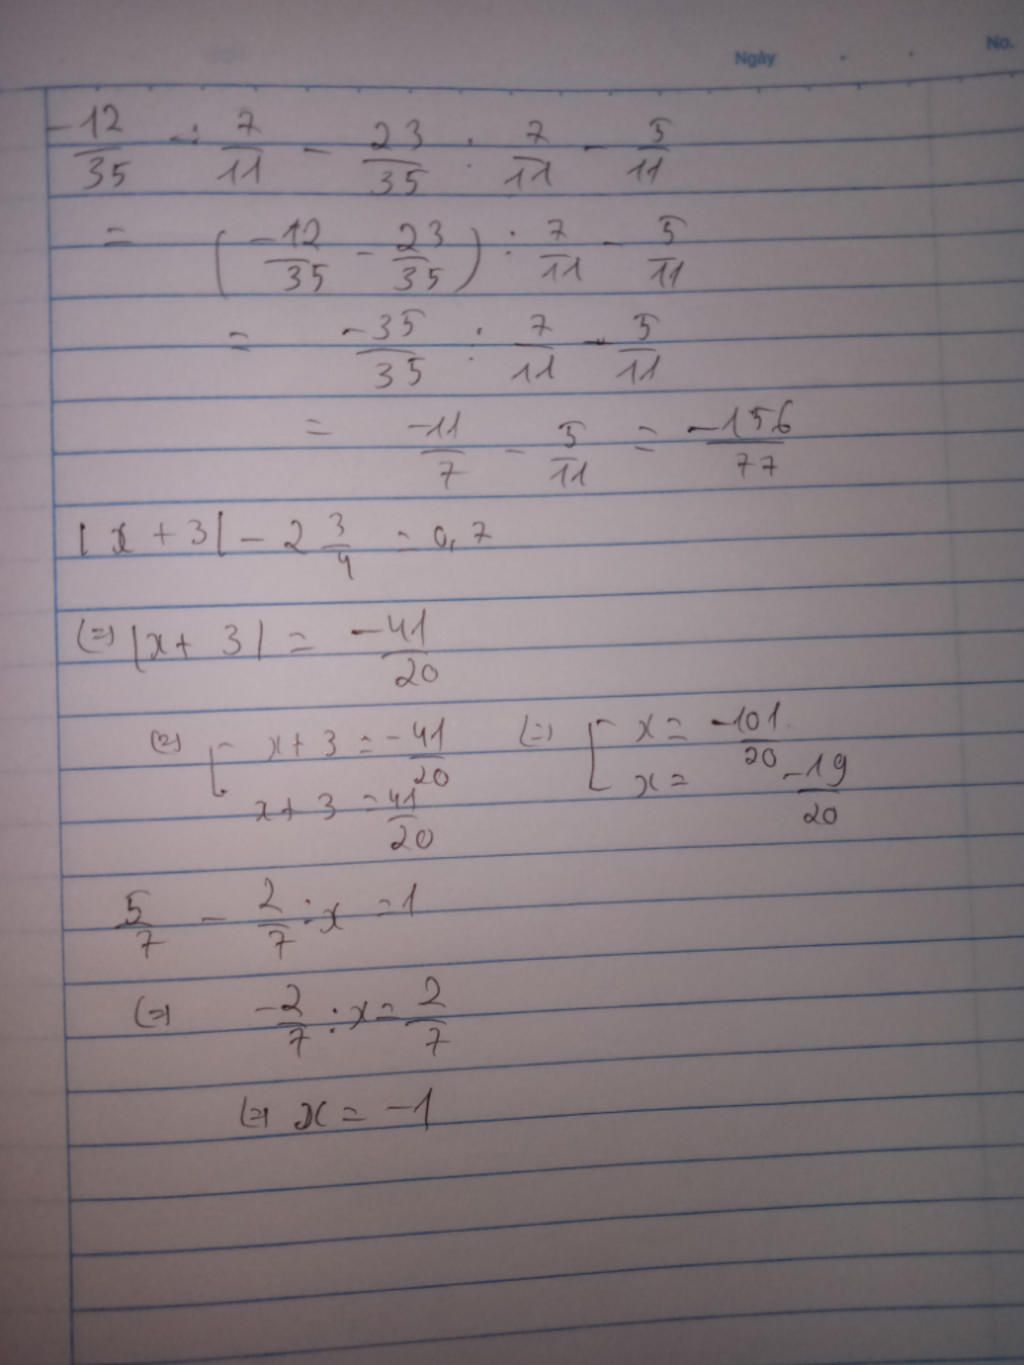 Ngày . . No.
-12/35 : 7/11 - 23/35 : 7/11 - 5/11
= (-12/35 - 23/35) : 7/11 - 5/11
= -35/35 : 7/11 - 5/11
= -11/7 - 5/11 = -156/77
|x + 3| - 2 3/4 = 0,7
(=) |x + 3| = -41/20
(=) [ x + 3 = -41/20 (=) [ x = -101/20
x + 3 = 41/20 x = -19/20
5/7 - 2/7 : x = 1
(=) -2/7 : x = 2/7
(=) x = -1